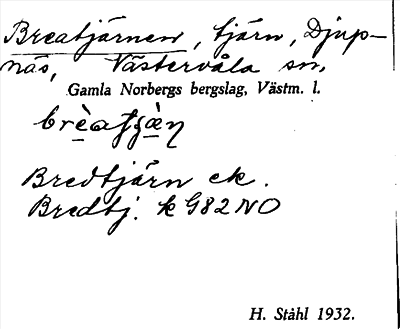 Breatjärnen, tjärn, Djup-
näs, Västervåla sn,
Gamla Norbergs bergslag, Västm. l.
Bredtjärn ek.
Bredtj. k G82NO
H. Ståhl 1932.